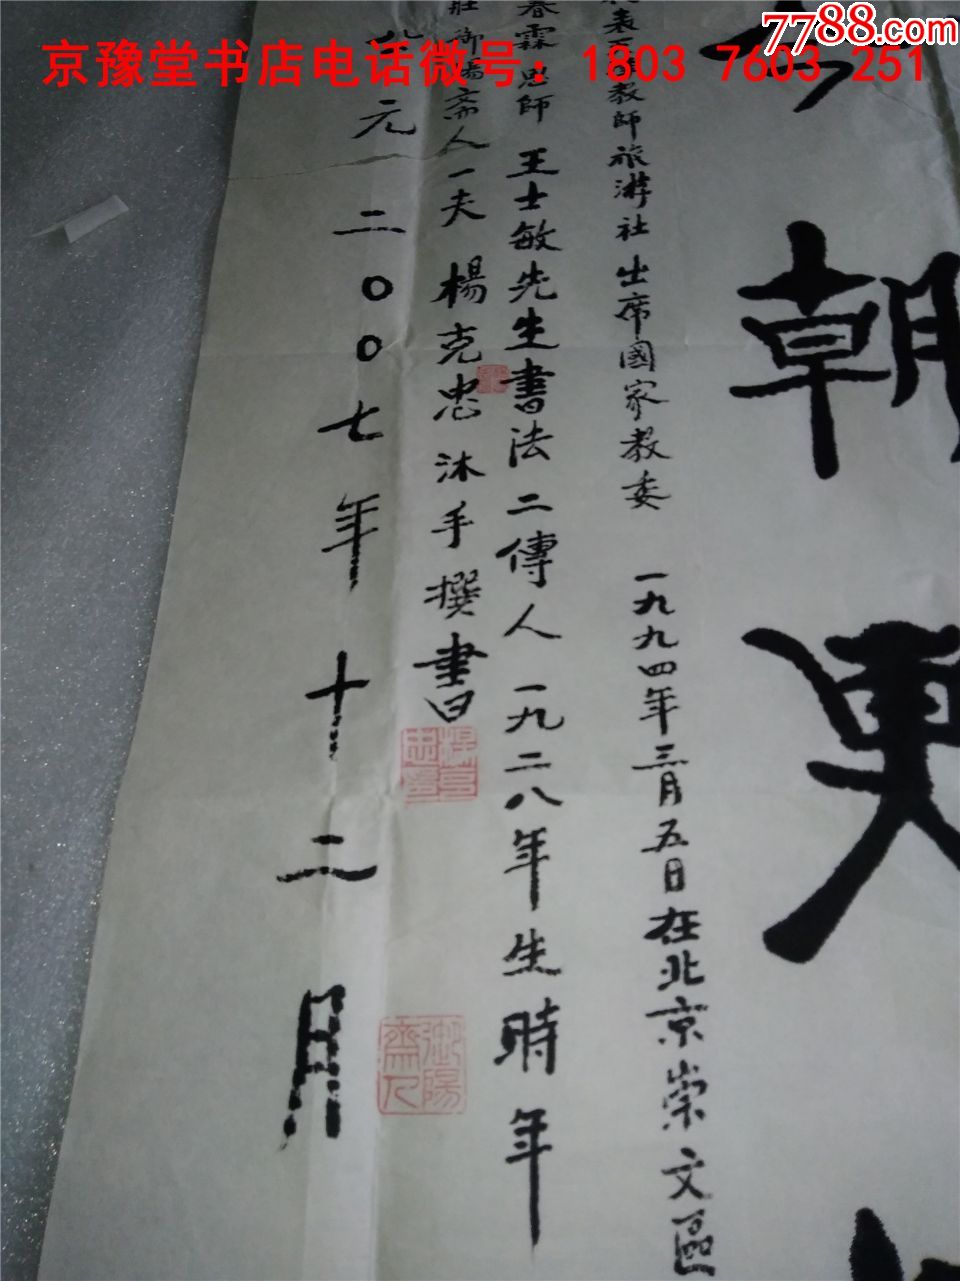 7788.com
京豫堂书店电话微号：1803 7603 251
朝
表
教師旅游社出席國家教委 一九九四年三月五日在北京崇文區
春霖恩師 王士敏先生書法二傳人 一九二八年生時年
莊御陽斋人一夫 楊克忠沐手撰書
元二00七年十二月
御陽齋人